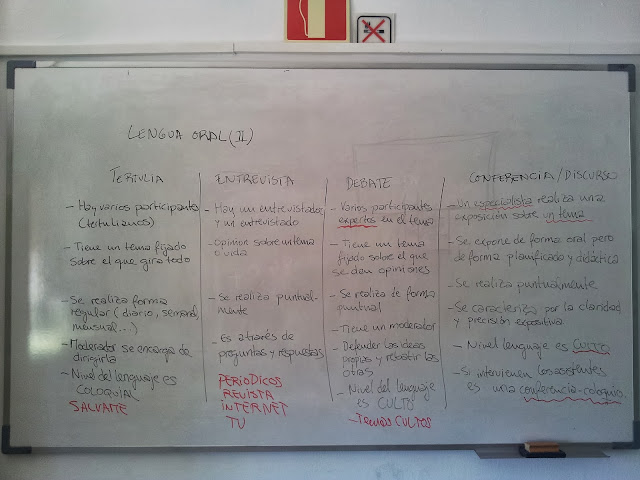 LENGUA ORAL (II)
TERTULIA
- Hay varios participantes
(tertulianos)
- Tiene un tema fijado
sobre el que gira todo
- Se realiza forma
regular (diario, semanal,
mensual,...)
- Moderador se encarga de
dirigirla
- Nivel del lenguaje es
COLOQUIAL
SALVAME
ENTREVISTA
- Hay un entrevistador
y un entrevistado
- Opinión sobre un tema
o vida
- Se realiza puntual-
mente
- Es a través de
preguntas y respuestas
PERIODICOS
REVISTA
INTERNET
TV
DEBATE
- Varios participantes
expertos en el tema
- Tiene un tema
fijado sobre el que
se dan opiniones
- Se realiza de forma
puntual
- Tiene un moderador
- Defender las ideas
propias y rebatir las
otras
- Nivel del lenguaje
es CULTO
- Temas CULTOS
CONFERENCIA/DISCURSO
- Un especialista realiza una
exposición sobre un tema
- Se expone de forma oral pero
de forma planificada y didáctica
- Se realiza puntualmente
- Se caracteriza por la claridad
y precisión expositiva
- Nivel lenguaje es CULTO
- Si intervienen los asistentes
es una conferencia-coloquio